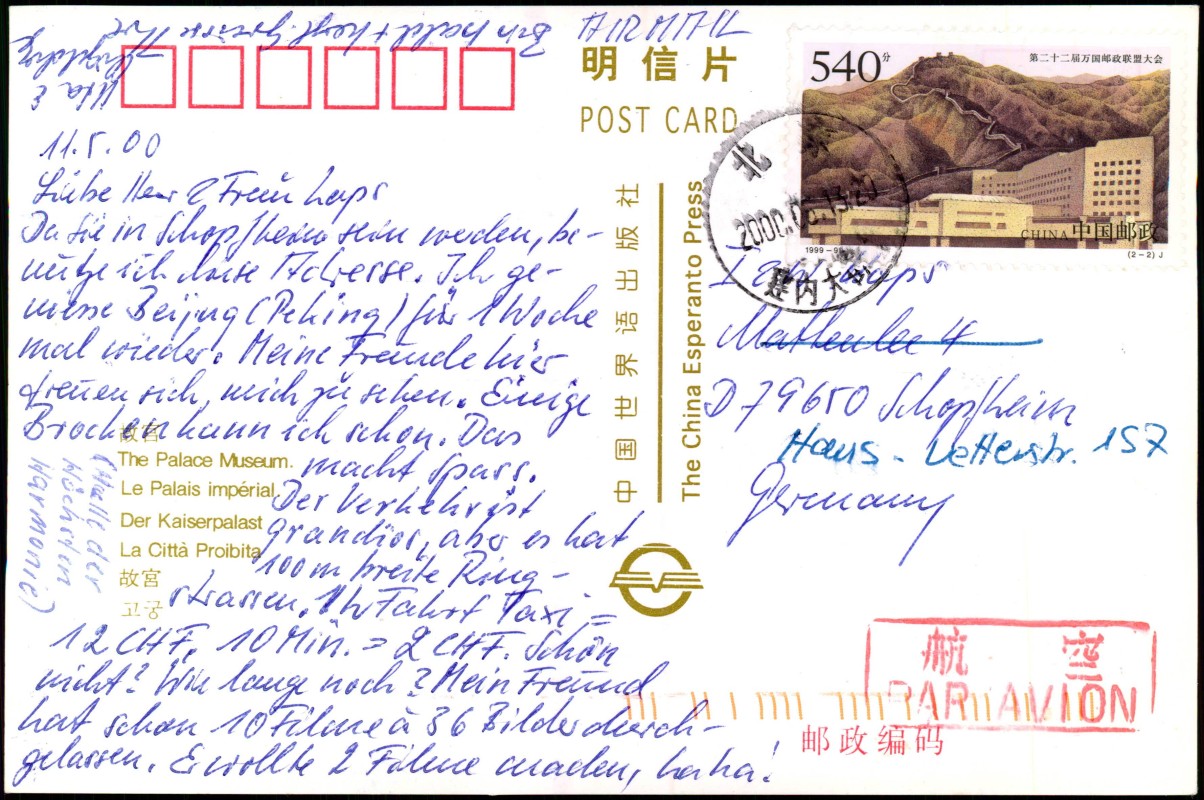 AIRMAIL
明信片
POST CARD
540分
第二十二届万国邮政联盟大会
CHINA 中国邮政
1999-9
(2-2) J
北
2000.
建内大
11.5.00
Liebe Herr & Frau Laps
Da Sie in Schopfheim sein werden, be-
nutze ich diese Adresse. Ich ge-
niesse Beijing (Peking) für 1 Woche
mal wieder. Meine Freunde hier
freuen sich, mich zu sehen. Einige
Brocken kann ich schon. Das
macht Spass.
Der Verkehr ist
grandios, aber es hat
100m breite Ring-
strassen. 1 Hr Fahrt Taxi =
12 CHF, 10 Min. = 2 CHF. Schön
nicht? Wie lange noch? Mein Freund
hat schon 10 Filme à 36 Bilder durch-
gelassen. Er wollte 2 Filme machen, haha!
herzl. Grüsse Ihre
Uta
故宫
The Palace Museum.
Le Palais impérial
Der Kaiserpalast
La Città Proibita
故宮
고궁
(Halle der
höchsten
Harmonie)
中国世界语出版社
The China Esperanto Press
Laps
Mattenlee 4
D 79650 Schopfheim
Hans-Vetterstr. 157
Germany
航空
PAR AVION
邮政编码